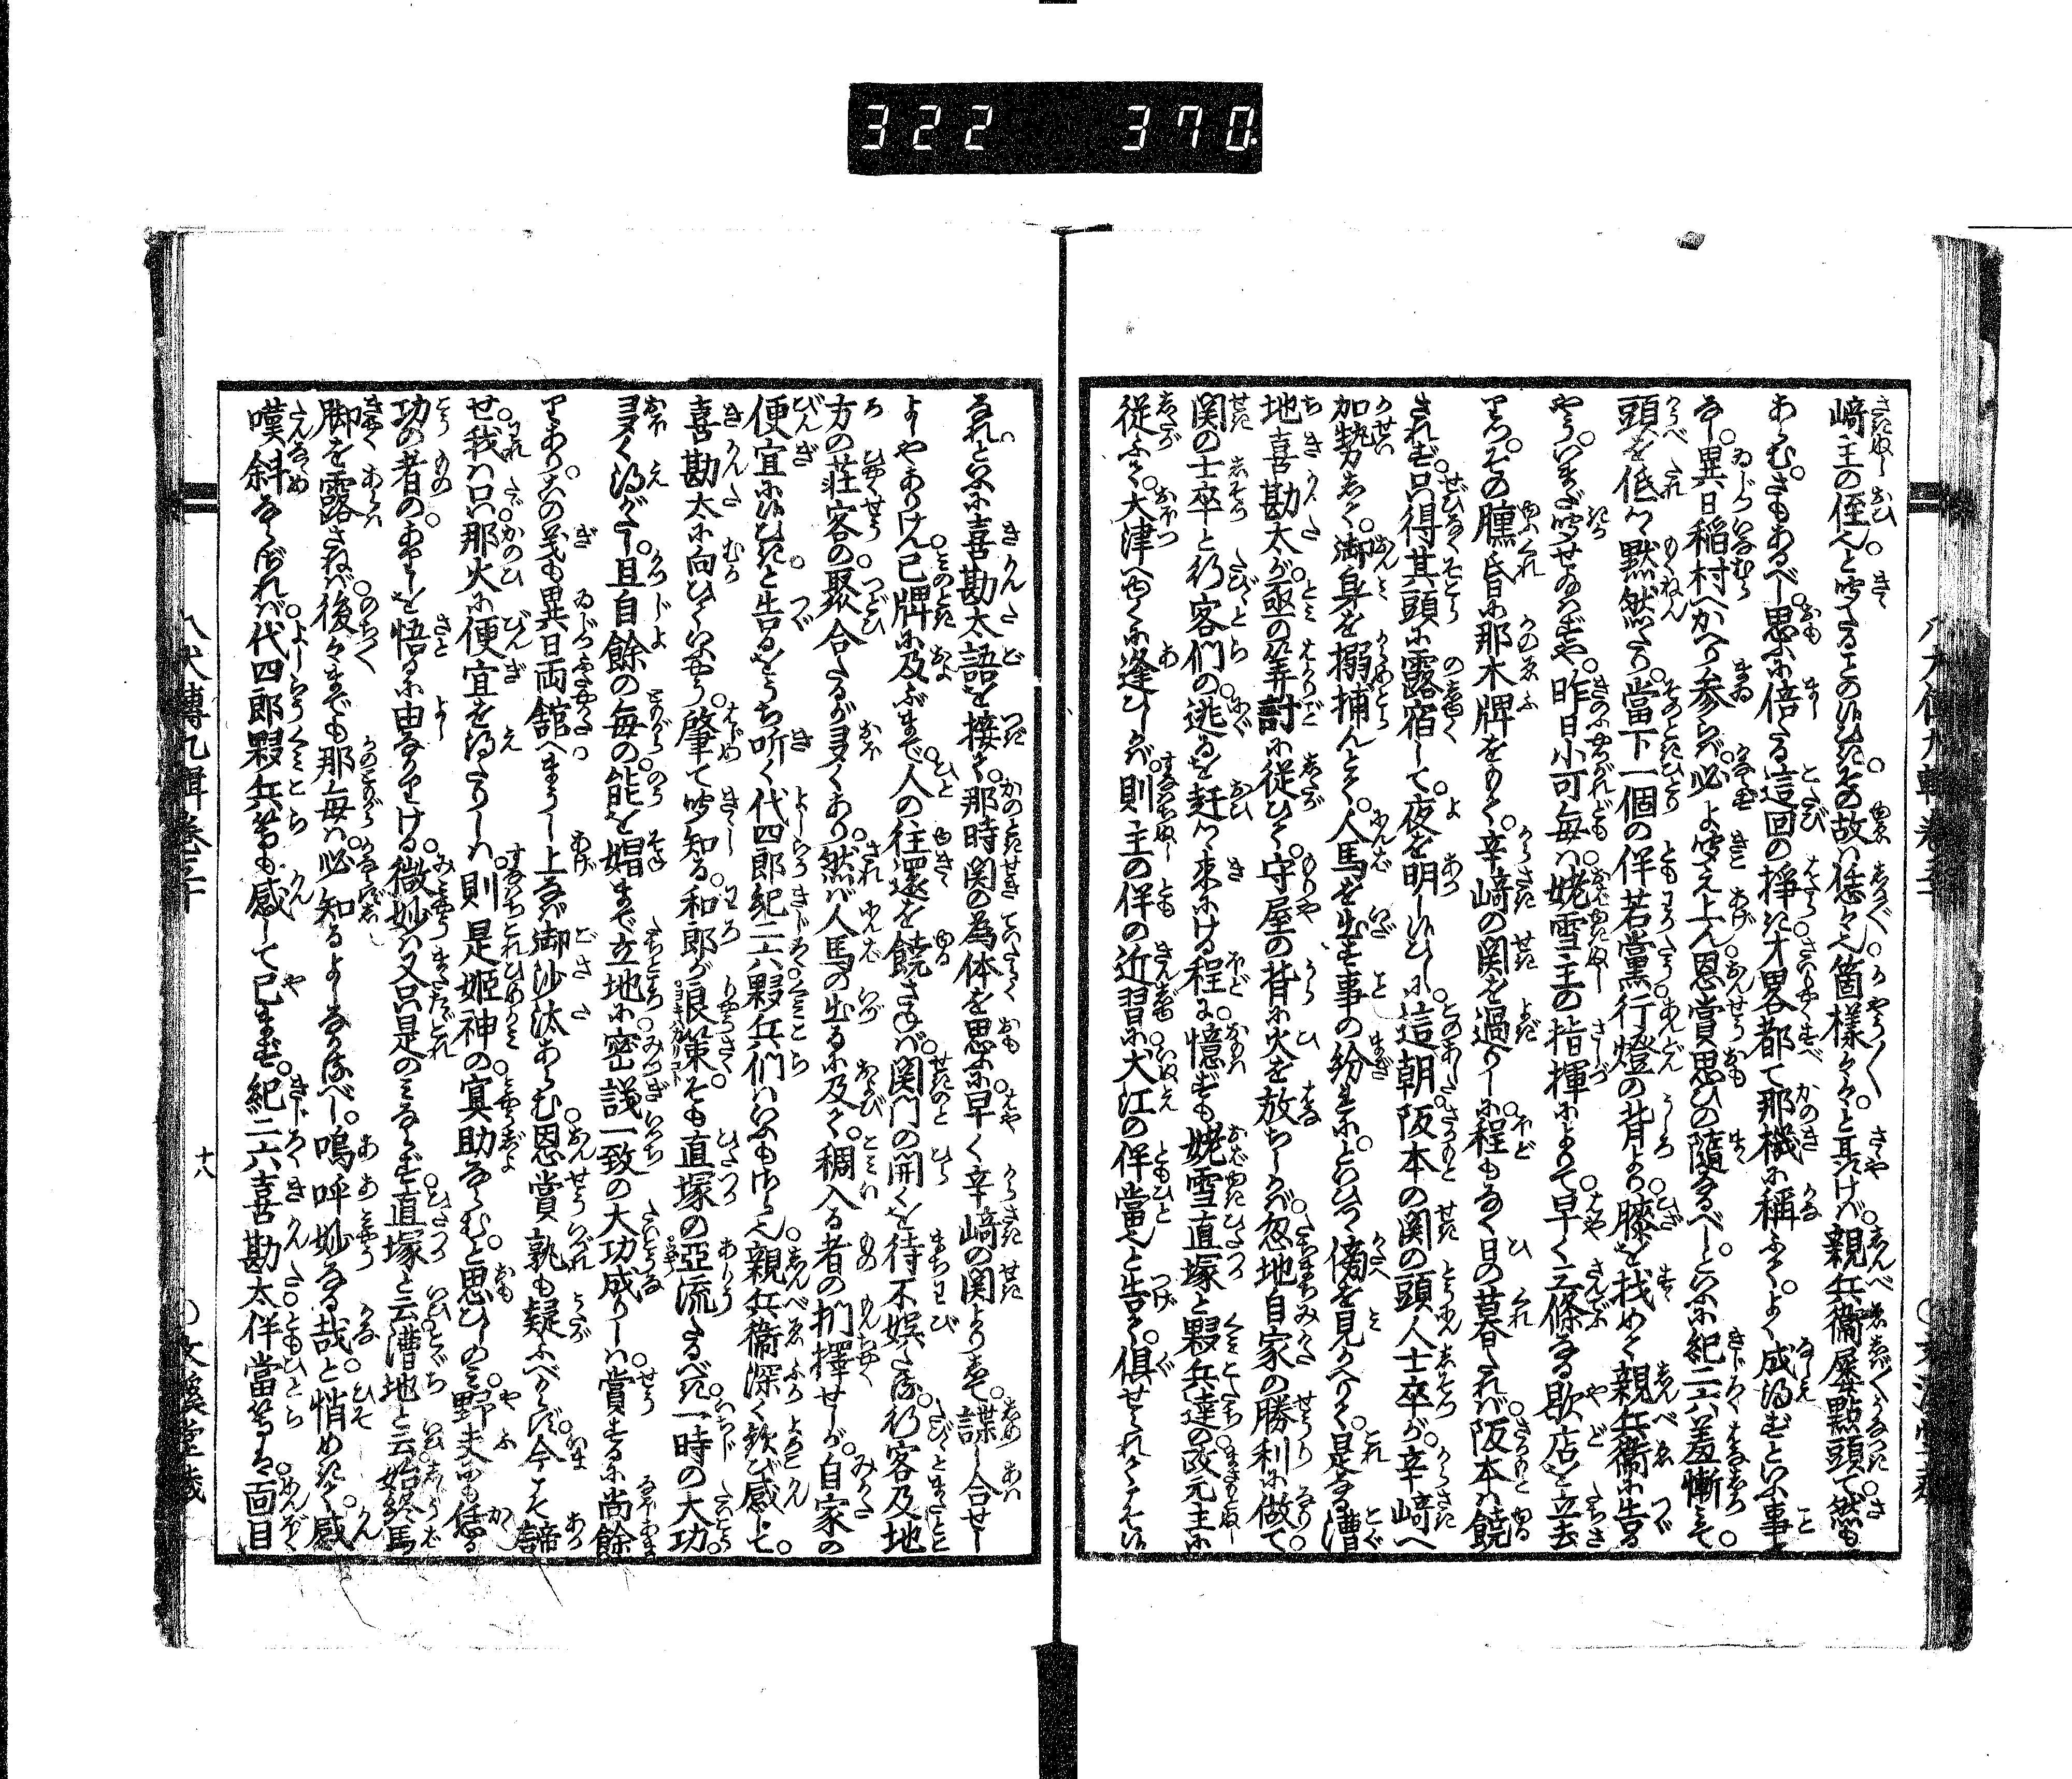 322 370
﨑主の侄へと咱さるこの給ひき。その故は恁々箇様々々。と耳けば。親兵衛屡點頭て。然も
あらむ。さもあるべし。思ふに倍たる這回の挣き。才畧都て那機に稱ふて。よく成得ずといふ事
なし。異日稲村へかへり参らば。必よ咲え上ん。恩賞思ひの隨なるべし。といふに紀二六羞慚て。
頭を低て黙然たり。當下一個の伴若黨行燈の背より膝を找めて。親兵衛に告る
やう。いまだ咱せ給はずや。昨日小可毎は姥雪主の指揮によりて。早く三條なる歇店を立去
りつ。その臛昏に那木牌をもて。辛﨑の関を過りしに。程もなく日の暮たれば。阪本は饒
されず。只得其頭に露宿して。夜を明し給ひしに。這朝阪本の関の頭人士卒が。辛﨑へ
加勢しく。御身を搦捕んとて。人馬を出す事の紛れに。とひつ傍を見かへりて。是なる漕
地喜勘太が亟の筭討に従ひて。守屋の背に火を放ちしかば。忽地自家の勝利に做て。
関の士卒と行客們の逃るを赶て来にける程に。憶ずも姥雪直塚と夥兵達の政元主に
従ふて。大津へゆくに逢ひしかば。則主の伴の近習に。犬江の伴當へと告て。俱せられてそひ
なれ。といふに喜勘太語を接て。那時関の為体を思ふに。早く辛﨑の関より出て。諜し合せし
よしやありけん。巳牌に及ぶまで。人の往還を饒さねば。関門の開くを待不娯たる。行客及地
方の荘客の聚合たるが多くあり。然ば人馬の出るに及て。稠入る者の捫擇せしが。自家の
便宜に給ひきと告るをうち听く代四郎紀二六夥兵們はいふもさらへ。親兵衛深く歓び感じて。
喜勘太に向ひていふやう。肇て咱知る。和郎が良策。そも直塚の亞流たるべき。一時の大功。
多く得がたし。且自餘の毎の能を媢まで。立地に密議一致の大功成りしは。賞するに尚餘
りあり。六の義も異日両舘へまうし上なば。御沙汰あらむ。恩賞孰も疑ふべからず。今こそ諦
せ。我は只那火に便宜を得たりしは。則是姫神の冥助ならむと思ひしのミ。野夫にも恁る
功の者の。ありしを悟るに由なかりける。微妙は又只是のミならず。直塚と云漕地と云。始終馬
脚を露さねば。後々までも那毎は。必知るよしなかるべし。嗚呼妙なる哉。と悄めきて。感
嘆斜ならざれば。代四郎夥兵等も感じて已まず。紀二六喜勘太伴當等は。面目
八犬傳九輯巻三十
十八
〇文溪堂藏